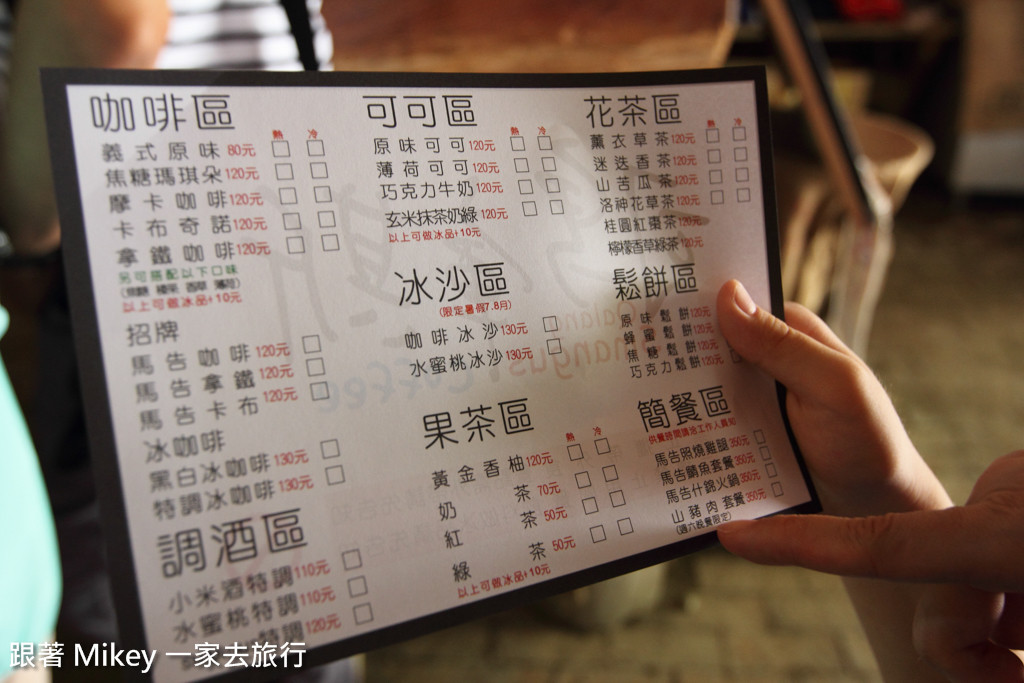 咖啡區
熱 冷
義式原味80元
焦糖瑪琪朵120元
摩卡咖啡120元
卡布奇諾120元
拿鐵咖啡120元
另可搭配以下口味
以上可做冰品+10元
招牌
馬告咖啡120元
馬告拿鐵120元
馬告卡布120元
冰咖啡
黑白冰咖啡130元
特調冰咖啡130元
調酒區
小米酒特調110元
水蜜桃特調110元
特調120元
可可區
熱 冷
原味可可120元
薄荷可可120元
巧克力牛奶120元
玄米抹茶奶綠120元
以上可做冰品+10元
冰沙區
(限定暑假7.8月)
咖啡冰沙130元
水蜜桃冰沙130元
果茶區
熱 冷
黃金香柚120元
奶茶70元
紅茶50元
綠茶50元
以上可做冰品+10元
花茶區
熱 冷
薰衣草茶120元
迷迭香茶120元
山苦瓜茶120元
洛神花草茶120元
桂圓紅棗茶120元
檸檬香草綠茶120元
鬆餅區
原味鬆餅120元
蜂蜜鬆餅120元
焦糖鬆餅120元
巧克力鬆餅120元
簡餐區
供餐時間請洽工作人員知
馬告照燒雞腿350元
馬告鯖魚套餐350元
馬告什錦火鍋350元
山豬肉套餐350元
(週六晚餐限定)
跟著 Mikey 一家去旅行